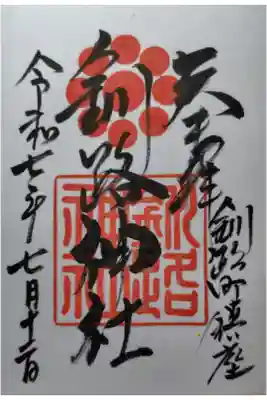 奉拝
釧路町鎮座
釧路神社
令和七年七月十二日
釧路神社